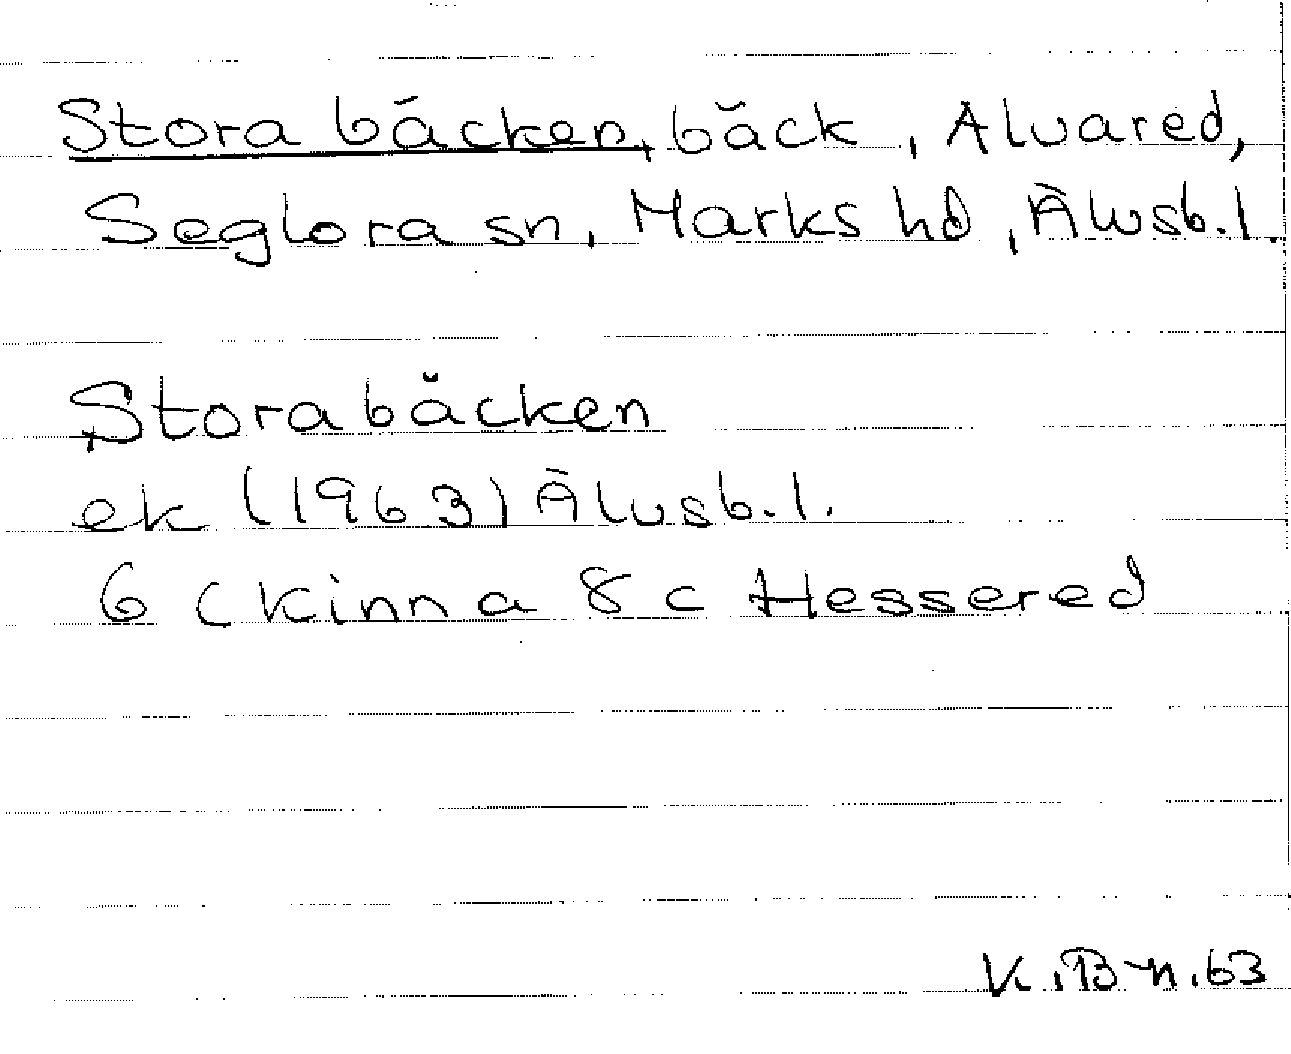 Stora bäcken, bäck, Alvared,
Seglora sn, Marks hd, Älvsb.l.
Stora bäcken
ek (1963) Älvsb.l.
6 C Kinna 8 c Hessered
K.B-n.63